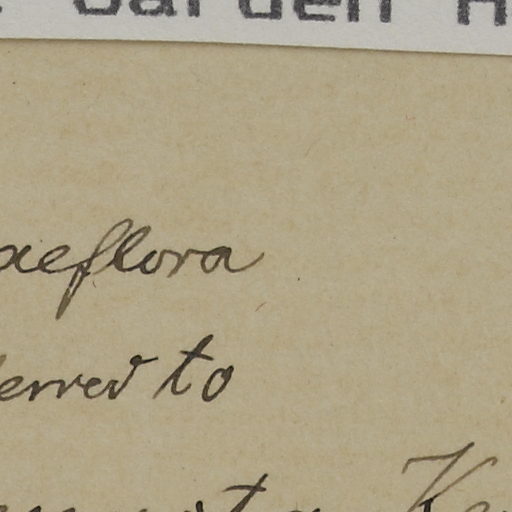 Garden H
aeflora
erred to